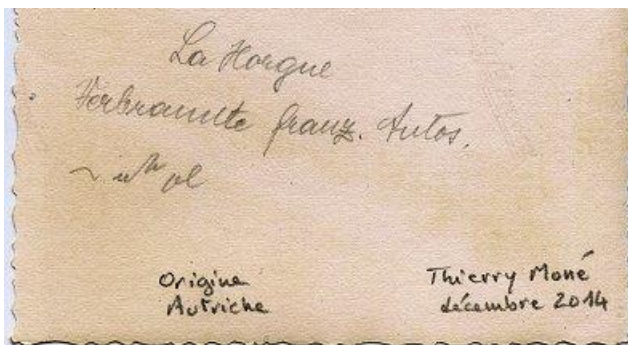 La Horgne
Verbrannte franz. Autos.
Origine
Autriche
Thierry Moné
décembre 2014